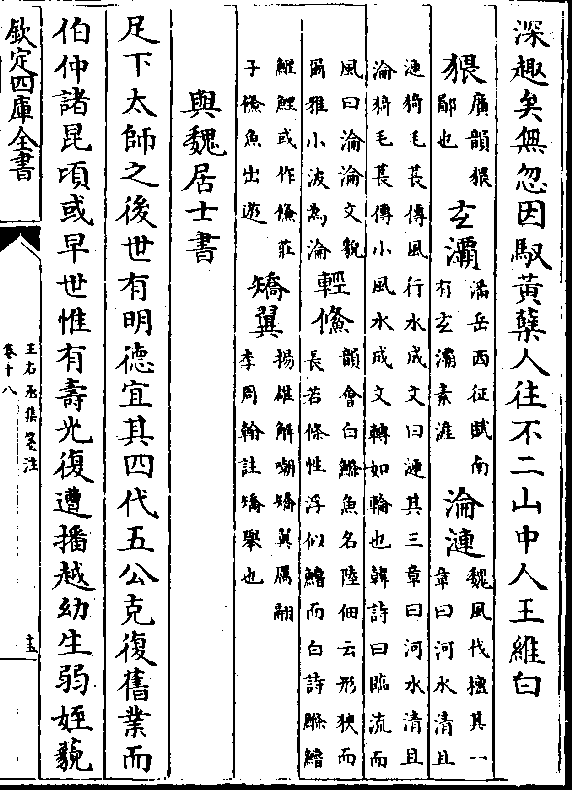 深趣矣無忽因馭黃蘗人往不二山中人王維白
猥廣韻猥鄙也玄灞潘岳西征賦南有玄灞素滻淪漣魏風伐檀其一章曰河水清且
漣猗毛萇傳風行水成文曰漣其三章曰河水清且
淪猗毛萇傳小風水成文轉如輪也韓詩曰臨流而
風曰淪淪文貌爾雅小波為淪輕鯈韻會白鰷魚名陸佃云形狹而長若條性浮似鱨而白詩鰷鱨
鰋鯉或作鯈莊子鯈魚出遊矯翼揚雄解嘲矯翼厲翮李周翰註矯舉也
與魏居士書
足下太師之後世有明德宜其四代五公克復舊業而
伯仲諸昆頃或早世惟有壽光復遭播越幼生弱姪藐
欽定四庫全書
王右丞集箋注
卷十八
十五